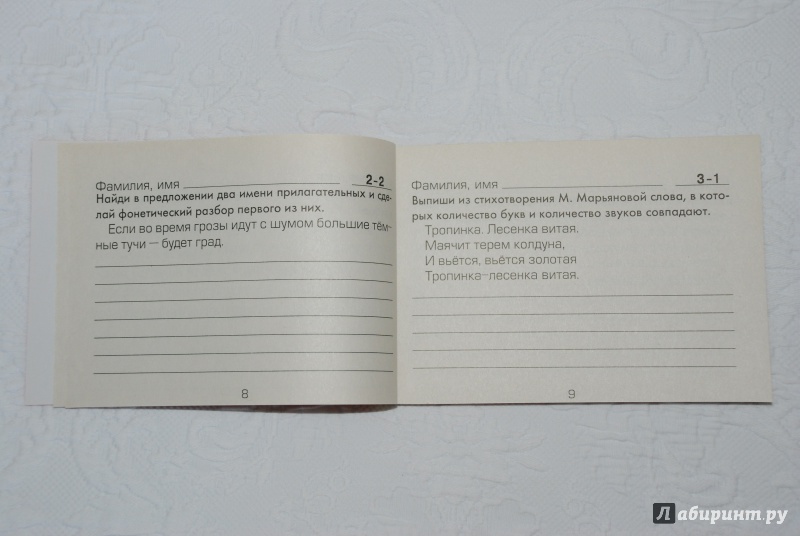 Фамилия, имя 2-2
Найди в предложении два имени прилагательных и сде-
лай фонетический разбор первого из них.
Если во время грозы идут с шумом большие тём-
ные тучи — будет град.
8
Фамилия, имя 3-1
Выпиши из стихотворения М. Марьяновой слова, в кото-
рых количество букв и количество звуков совпадают.
Тропинка. Лесенка витая.
Маячит терем колдуна,
И вьётся, вьётся золотая
Тропинка-лесенка витая.
9
Лабиринт.ру